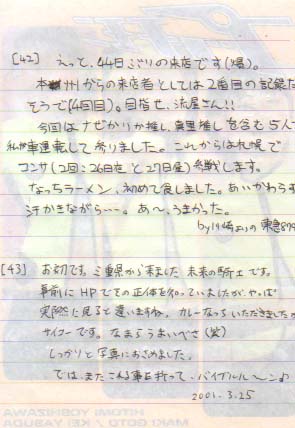 [42] えっと、44日ぶりの来店です(爆)。
本州からの来店者としては2番目の記録だ
そうで(4回目)。目指せ、流星さん!!
今回はナゼかりか推し、真里推しを含む5人で
私が車運転して参りました。これからは札幌で
コンサ(2回:26日夜と27日昼)参戦します。
なっちラーメン、初めて食しました。あいかわらず
汗かきながら…。あ〜、うまかった。
by川崎よりの東急
[43] お初です。三重県から来ました未来の騎士です。
事前にHPでその正体を知っていましたが、やっぱ
実際に見ると違いますね。カレーなっちいただきましたが
サイコーです。なまらうまいべさ(笑)
しっかりと写真におさめました。
では、またこれる事を祈って、バイブルル〜ン♪
2001.3.25
HITOMI YOSHIZAWA
MAKI GOTO KEI YASUDA